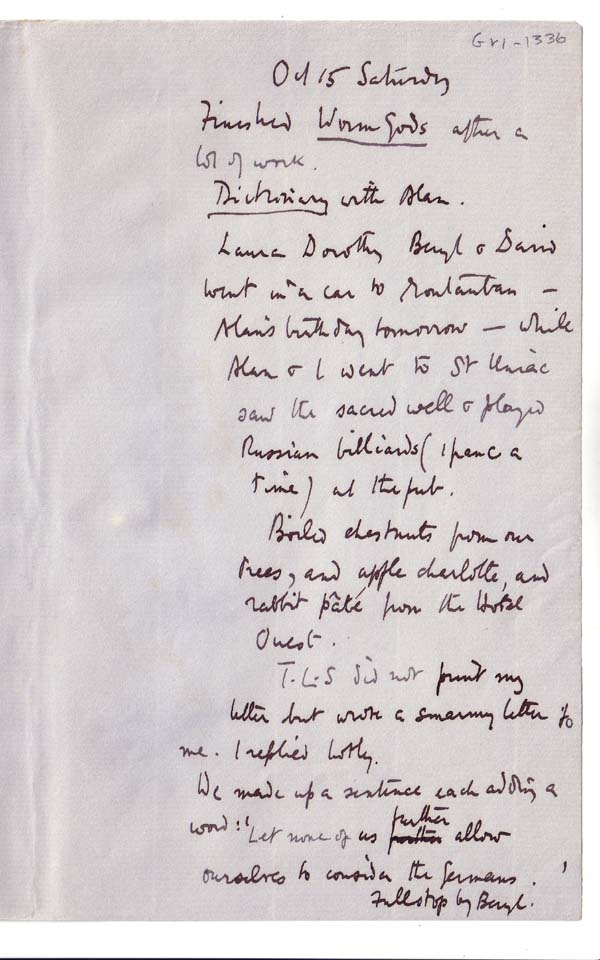 Gr1-1336
Oct 15 Saturday
Finished Worm Gods after a
lot of work.
Dictionary with Alan.
Laura Dorothy Beryl & David
went in a car to Montauban –
Alan's birthday tomorrow – while
Alan & I went to St Uniac
saw the sacred well & played
Russian billiards (1 franc a
time) at the pub.
Boiled chestnuts from our
trees, and apple charlotte, and
rabbit pâté from the Hotel
Ouest.
T.L.S did not print my
letter but wrote a smarmy letter to
me. I replied hotly.
We made up a sentence each adding a
word: 'Let none of us further allow
ourselves to consider the Germans.'
Full stop by Beryl.